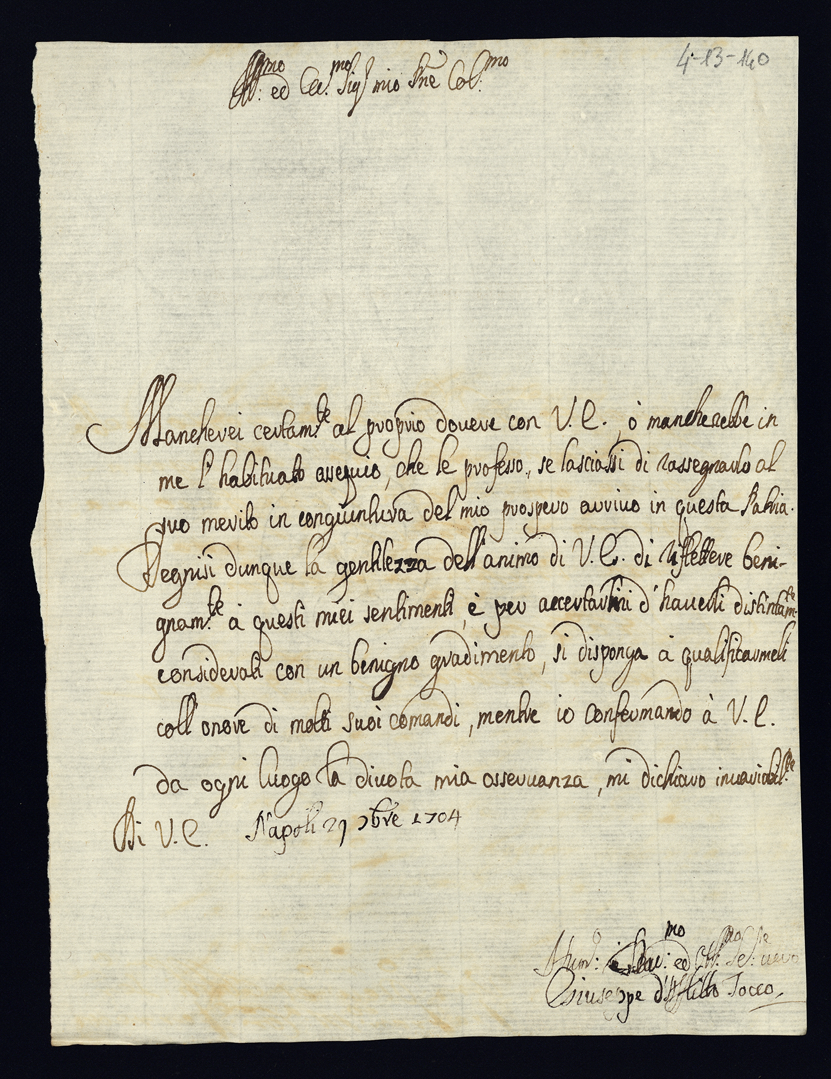 4-13-140
Ill.mo ed Ecc.mo Sig.r mio Pne Col.mo
Mancherei certam.te al proprio dovere con V. E., ò mancherebbe in
me l'habituato ossequio, che le professo, se lasciassi di rassegnarlo al
suo merito in congiuntura del mio prospero arrivo in questa Patria.
Degnisi dunque la gentilezza dell'animo di V. E. di riflettere beni-
gnam.te à questi miei sentimenti, è per accertarmi d'haverli distintam.te
considerati con un benigno gradimento, si disponga à qualificarmeli
coll'onore di molti suoi comandi, mentre io confermando à V. E.
da ogni luogo la divota mia osservanza, mi dichiaro invariabil.te
Di V. E. Napoli 29 9bre 1704
ed Ser.re vero
Giuseppe d'Afflitto Tocco